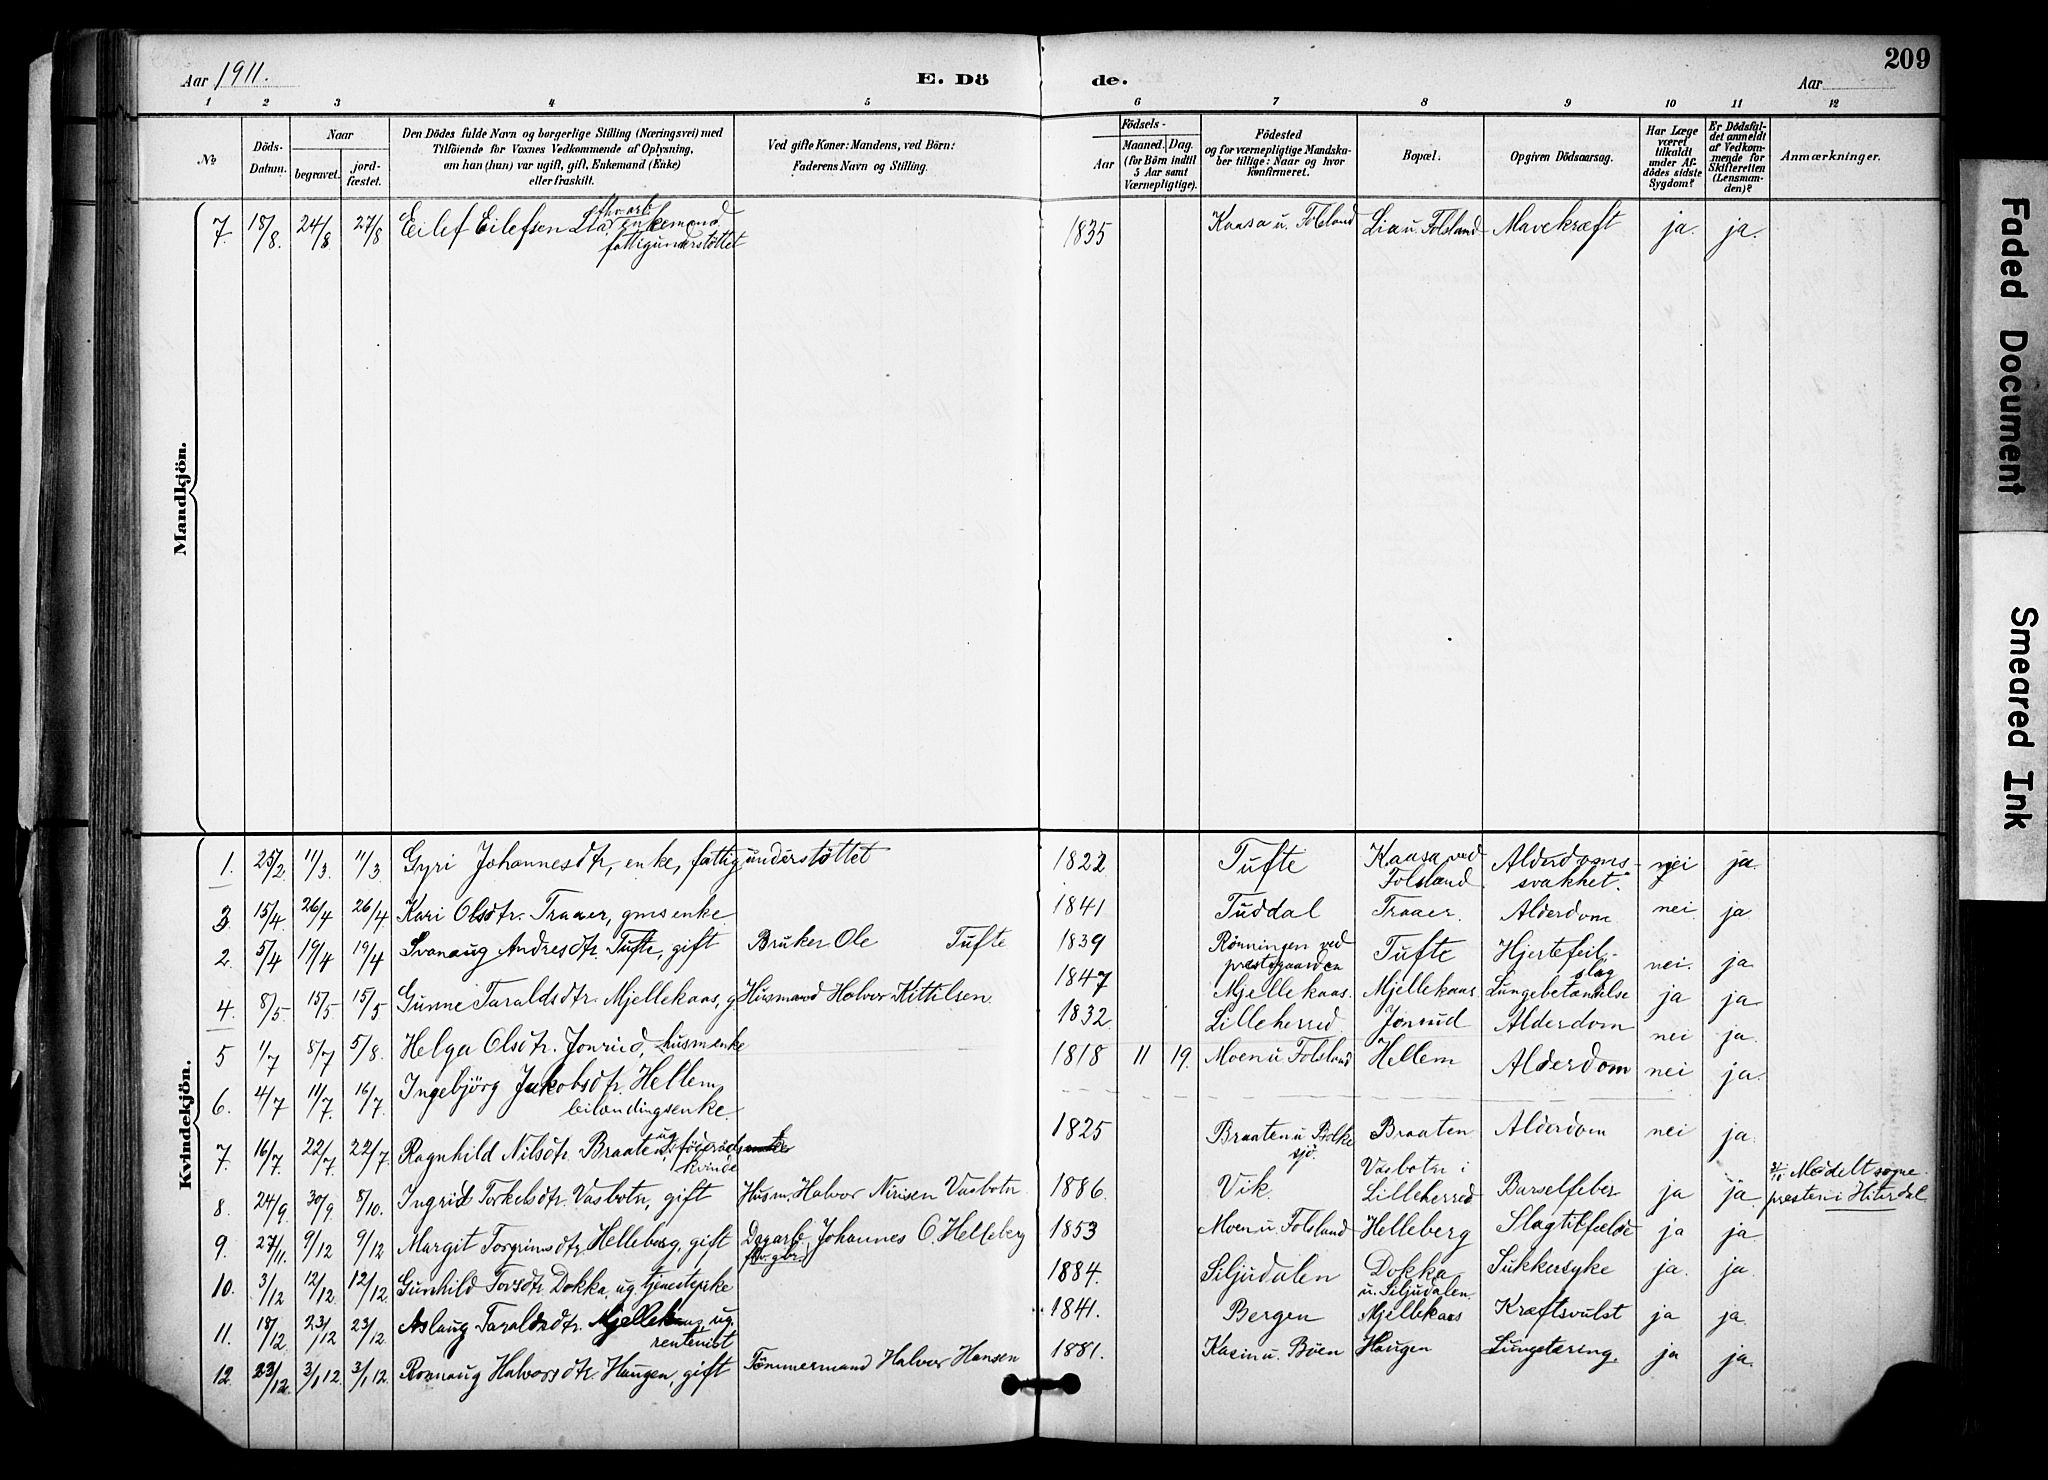 209
Aar 1911. E. Dö de. Aar
1 2 3 4 5 6 7 8 9 10 11 12
No
Döds-Datum.
Naar
begravet.
jord-fæstet.
Den Dödes fulde Navn og borgerlige Stilling (Næringsvei) med
Tilföiende for Voxnes Vedkommende af Oplysning,
om han (hun) var ugift, gift, Enkemand (Enke)
eller fraskilt.
Ved gifte Koner: Mandens, ved Börn:
Faderens Navn og Stilling.
Födsels-
Aar
Maaned. Dag.
(for Börn indtil
5 Aar samt
Værnepligtige).
Födested
og for værnepligtige Mandska-
ber tillige: Naar og hvor
konfirmeret.
Bopæl.
Opgiven Dödsaarsag.
Har Læge
været
tilkaldt
under Af-
dödes sidste
Sygdom?
Er Dödsfal-
det anmeldt
af Vedkom-
mende for
Skifteretten
(Lensman-
den)?
Anmærkninger.
Mandkjön.
7. 18/8. 24/8 27/8 Eilef Eilefsen Lia, fhv. arb. enkemand, fattigunderstöttet 1835 Kaasa u. Folsland Lia u. Folsland Mavekræft ja. ja.
Kvindekjön.
1. 25/2. 11/3. 11/3 Gyri Johannesdtr, enke, fattigunderstøttet 1822 Tufte Kaasa ved Folsland Alderdoms-svakhet. nei ja.
3 15/4 26/4 26/4 Kari Olsdtr. Traaer, gmsenke 1841 Tuddal Traaer. Alderdom nei ja
2. 5/4 19/4 19/4 Svanaug Andresdtr. Tufte, gift Bruker Ole Tufte 1839 Rönningen ved prestegaarden Tufte Hjertefeil-slag nei. ja
4. 8/5 15/5 15/5 Gunne Taraldsdtr. Mjellekaas, g. Husmand Halvor Kittilsen. 1847 Mjellekaas. Mjellekaas Lungebetændelse ja ja
5 1/7 8/7 5/8. Helga Olsdtr. Jonrud, husmenke 1832 Lilleherred Jonrud Alderdom nei ja.
6. 4/7 11/7. 16/7 Ingebjörg Jakobsdtr. Hellem, beilandingsenke. 1818 11 19. Moen u. Folsland Hellem Alderdom nei ja.
7. 16/7. 22/7. 22/7. Ragnhild Nilsdtr. Braaten, ug. föderåds kvinde 1825 Braaten u Bolkesjö. Braaten Alderdom nei ja.
8. 24/9. 30/9. 8/10. Ingrid Torkelsdtr. Vasbotn, gift Husm. Halvor Nirisen Vasbotn 1886. Vik. Vasbotn i Lilleherred Barselfeber ja ja Meddelt sogne-presten i Hiterdal
9. 27/11. 9/12 9/12 Margit Torgrimsdtr. Helleberg, gift Dagarb. fhv. gbr. Johannes O. Helleberg 1853 Moen u. Folsland Helleberg Slagtilfælde ja ja.
10. 3/12 12/12. 12/12. Gunhild Torsdtr. Dokka, ug. tjenestepike 1884. Siljudalen Dokka u. Siljudalen. Sukkersyke ja. ja.
11. 18/12 23/12 23/12. Aslaug Taraldsdtr. Mjellekaas, ug. rentenist 1841. Bergen Mjellekaas Kræftsvulst ja ja.
12. 23/12. 3/1 12. 3/1 12. Ronnaug Halvorsdtr. Haugen, gift Tömmermand Halvor Hansen 1881. Kasin u. Böen Haugen Lungetæring. ja ja.
Faded Document
Smeared Ink